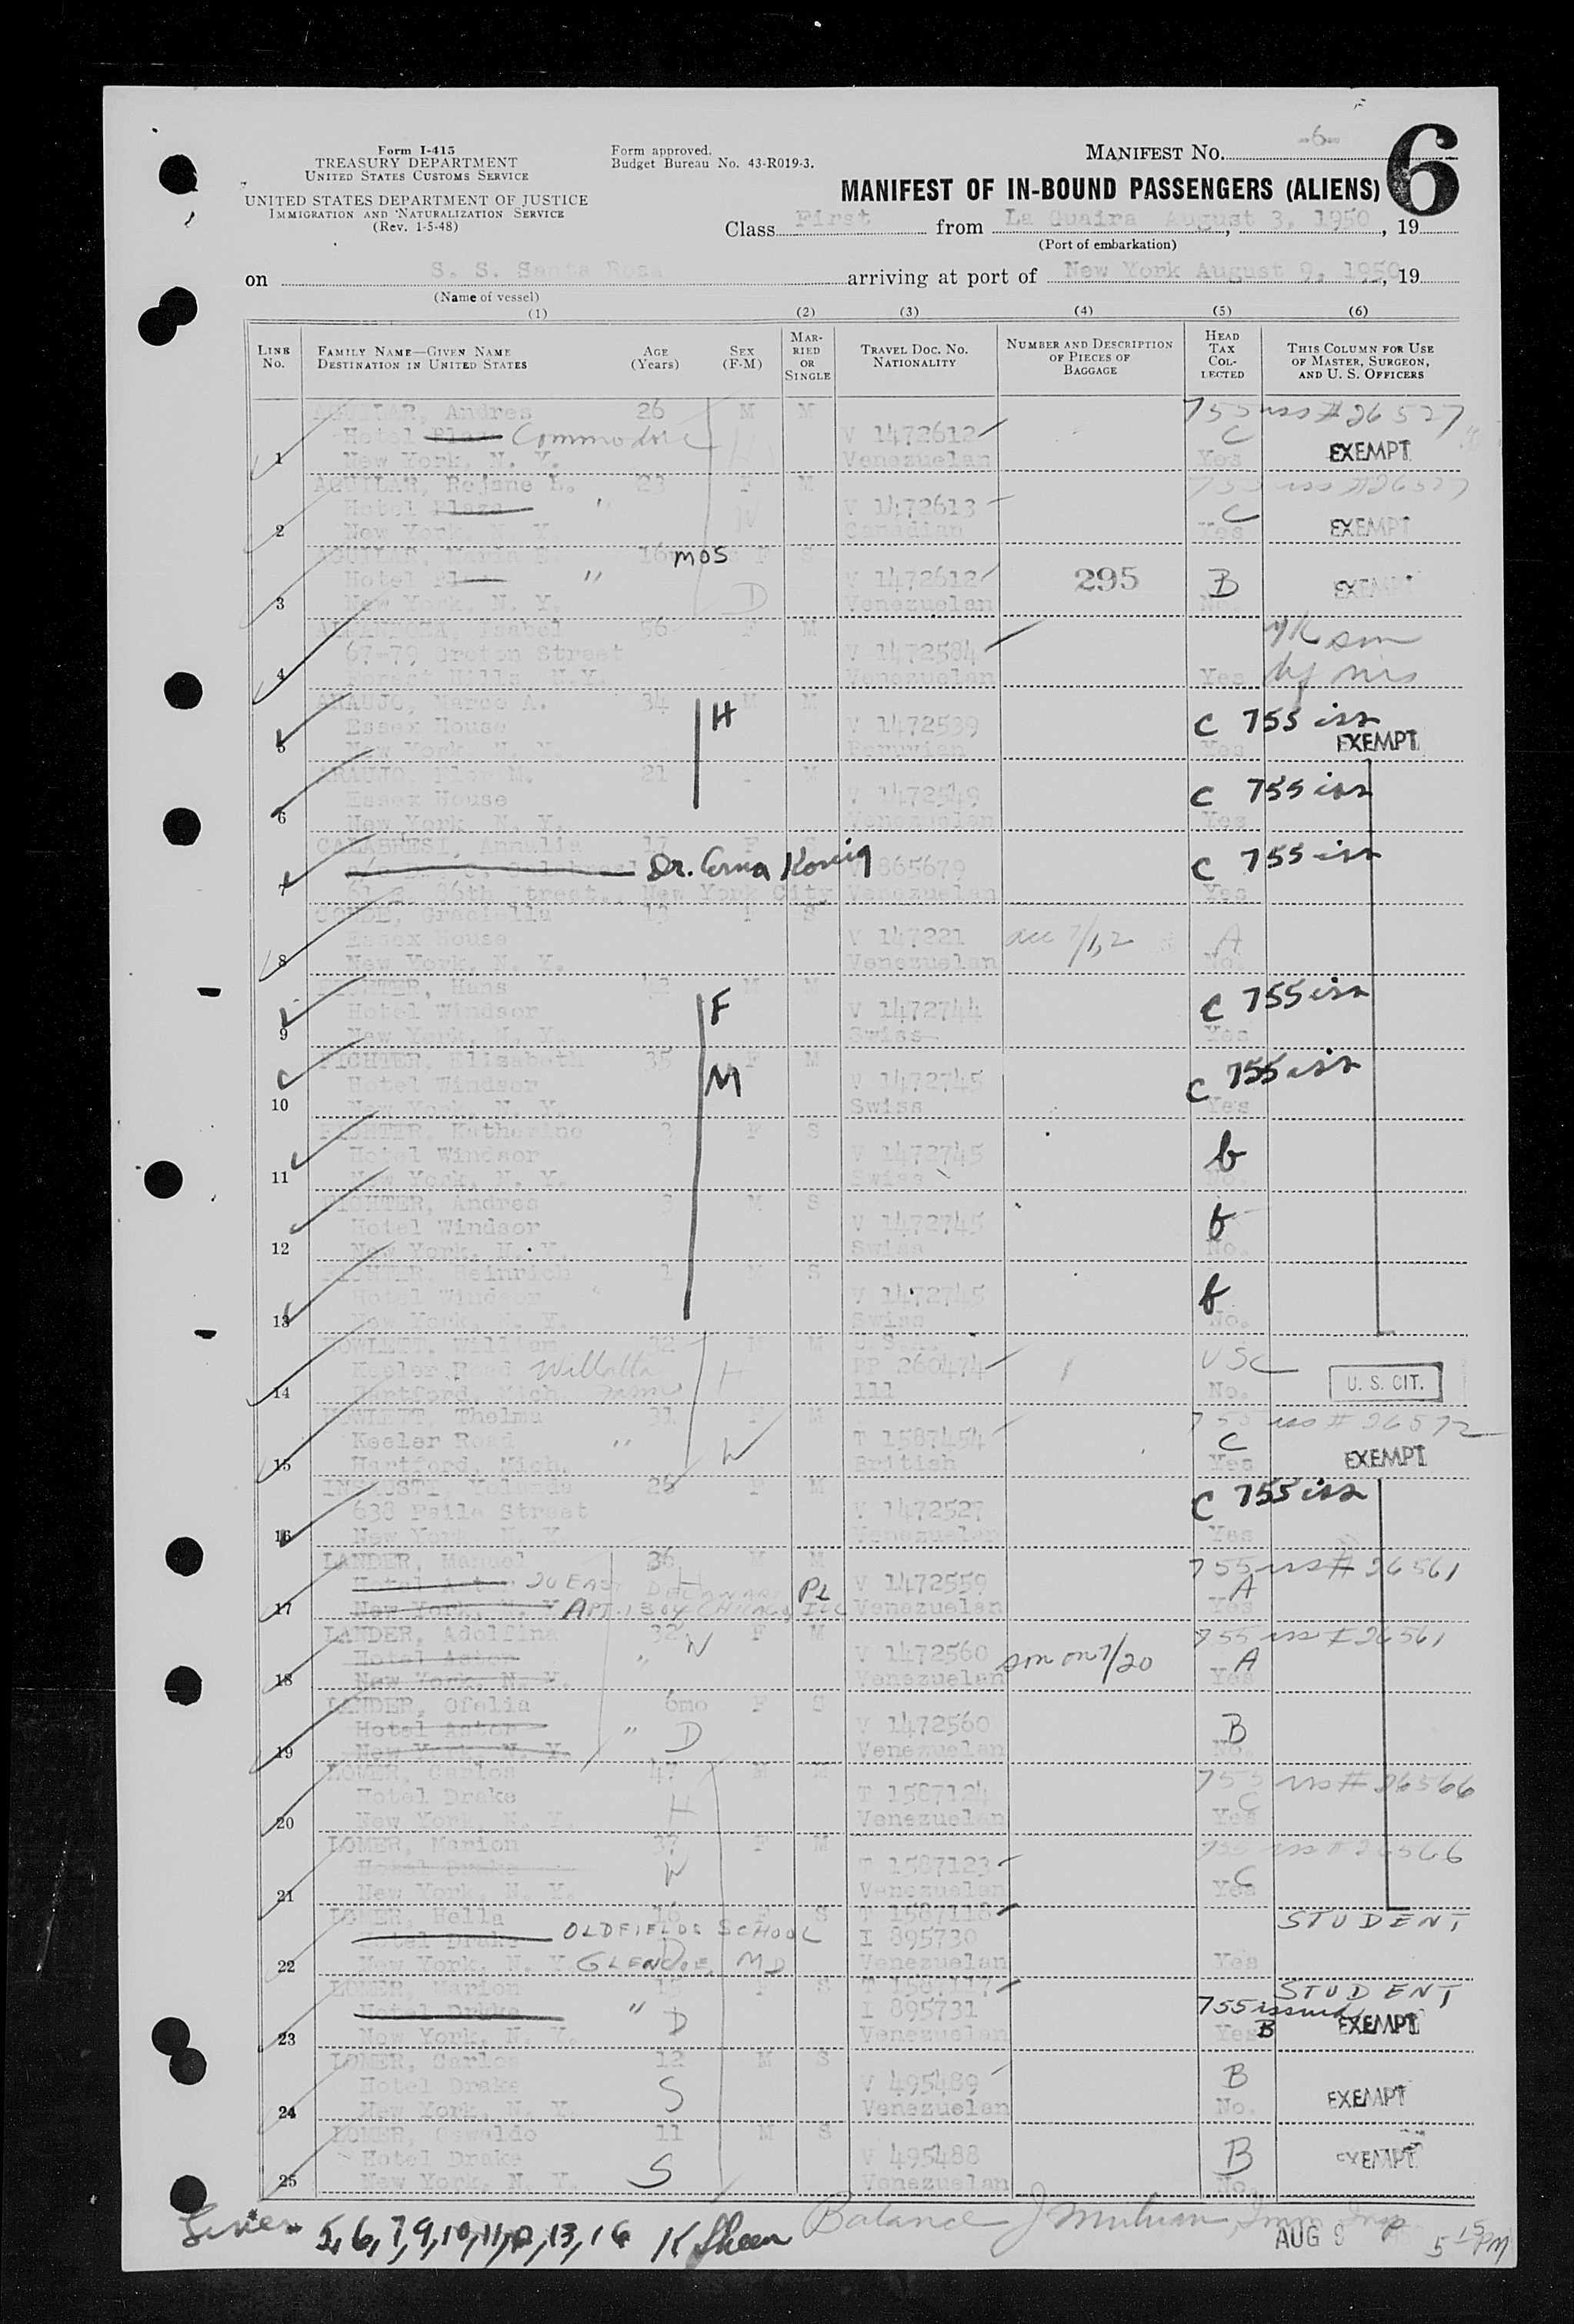 Form I-415
TREASURY DEPARTMENT
UNITED STATES CUSTOMS SERVICE
UNITED STATES DEPARTMENT OF JUSTICE
IMMIGRATION AND NATURALIZATION SERVICE
(Rev. 1-5-48)
Form approved.
Budget Bureau No. 43-R019-3.
MANIFEST NO. -6-
6
MANIFEST OF IN-BOUND PASSENGERS (ALIENS)
Class First from La Guaira August 3, 1950, 19
(Port of embarkation)
on S. S. Santa Rosa arriving at port of New York August 9, 1950, 19
(Name of vessel)
(1) (2) (3) (4) (5) (6)
LINE No. FAMILY NAME—GIVEN NAME DESTINATION IN UNITED STATES AGE (Years) SEX (F-M) MARRIED OR SINGLE TRAVEL DOC. NO. NATIONALITY NUMBER AND DESCRIPTION OF PIECES OF BAGGAGE HEAD TAX COLLECTED THIS COLUMN FOR USE OF MASTER, SURGEON, AND U. S. OFFICERS
AGUILAR, Andres 26 M M 755 iss #26527
Hotel Plaza Commodore V 1472612 C
1 New York, N. Y. Venezuelan Yes EXEMPT
AGUILAR, Rejane L. 23 F M 755 iss #26527
Hotel Plaza " V 1472613 C
2 New York, N. Y. W Canadian Yes EXEMPT
AGUILAR, Maria 16 mos F S
Hotel " V 1472612 295 B
3 New York, N. Y. D Venezuelan No. EXEMPT
Isabel 56 F M
67-79 Groton Street V 1472584
4 Forest Hills, N.Y. Venezuelan Yes
ARAUJO, Marco A. 34 H M M C 755 iss
Essex House V 1472539
5 New York, N. Y. Peruvian Yes EXEMPT
ARAUJO, Flor M. 21 F M
Essex House V 1472549 C 755 iss
6 New York, N. Y. Venezuelan Yes
CALABRESI, Annalie 17 F S
Dr. Erna Konig V 865679 C 755 iss
7 61 E. 86th Street., New York City Venezuelan Yes
CONDE, Graciella 13 F S
Essex House V 147221 A
8 New York, N. Y. Venezuelan No.
FICHTER, Hans 43 F M M C 755 iss
Hotel Windsor V 1472744
9 New York, N. Y. Swiss Yes
FICHTER, Elisabeth 35 F M 755 iss
Hotel Windsor M V 1472745 C
10 New York, N. Y. Swiss Yes
FICHTER, Katherine F S
Hotel Windsor V 1472745 b
11 New York, N. Y. Swiss No.
FICHTER, Andres 3 M S
Hotel Windsor V 1472745 b
12 New York, N. Y. Swiss No.
FICHTER, Heinrich 1 M S
Hotel Windsor V 1472745 b
13 New York, N. Y. Swiss No.
HOWLETT, William 32 M M U.S.A. USC
Keeler Road H PP 260474
14 Hartford, Mich. 111 No. U. S. CIT.
HOWLETT, Thelma 31 F M 755 iss # 26572
Keeler Road " T 1587454 C
15 Hartford, Mich. W British Yes EXEMPT
Yolanda 25 F M C 755 iss
638 Street V 1472527
16 New York, N. Y. Venezuelan Yes
LANDER, Manuel 36 M M 755 iss # 26561
Hotel Astor 20 EAST DELAWARE PL V 1472559 A
17 New York, N. Y. APT. 1304 CHICAGO ILL Venezuelan Yes
LANDER, Adolfina 32 W F M 755 iss # 26561
Hotel Astor " V 1472560 son on 7/20 A
18 New York, N. Y. Venezuelan Yes
LANDER, Ofelia 6mo F S
Hotel Astor " D V 1472560 B
19 New York, N. Y. Venezuelan No.
LOMER, Carlos 47 M M 755 iss # 26566
Hotel Drake H T 1587124 C
20 New York, N. Y. Venezuelan Yes
LOMER, Marion 37 F M 755 iss # 26566
Hotel Drake W T 1587123 C
21 New York, N. Y. Venezuelan Yes
LOMER, Hella 16 F S T 1587118 STUDENT
Hotel Drake OLDFIELDS SCHOOL I 895730
22 New York, N. Y. GLENCOE, MD Venezuelan Yes
LOMER, Marion 15 F S T 1587117 STUDENT
Hotel Drake " D I 895731 755 issued
23 New York, N. Y. Venezuelan Yes B EXEMPT
LOMER, Carlos 12 M S
Hotel Drake S V 495489 B
24 New York, N. Y. Venezuelan No. EXEMPT
LOMER, Oswaldo 11 M S
Hotel Drake S V 495488 B EXEMPT
25 New York, N. Y. Venezuelan No.
Lines 5, 6, 7, 9, 10, 11, 12, 13, 16 K Sheen Balance
AUG 9 5 15 PM